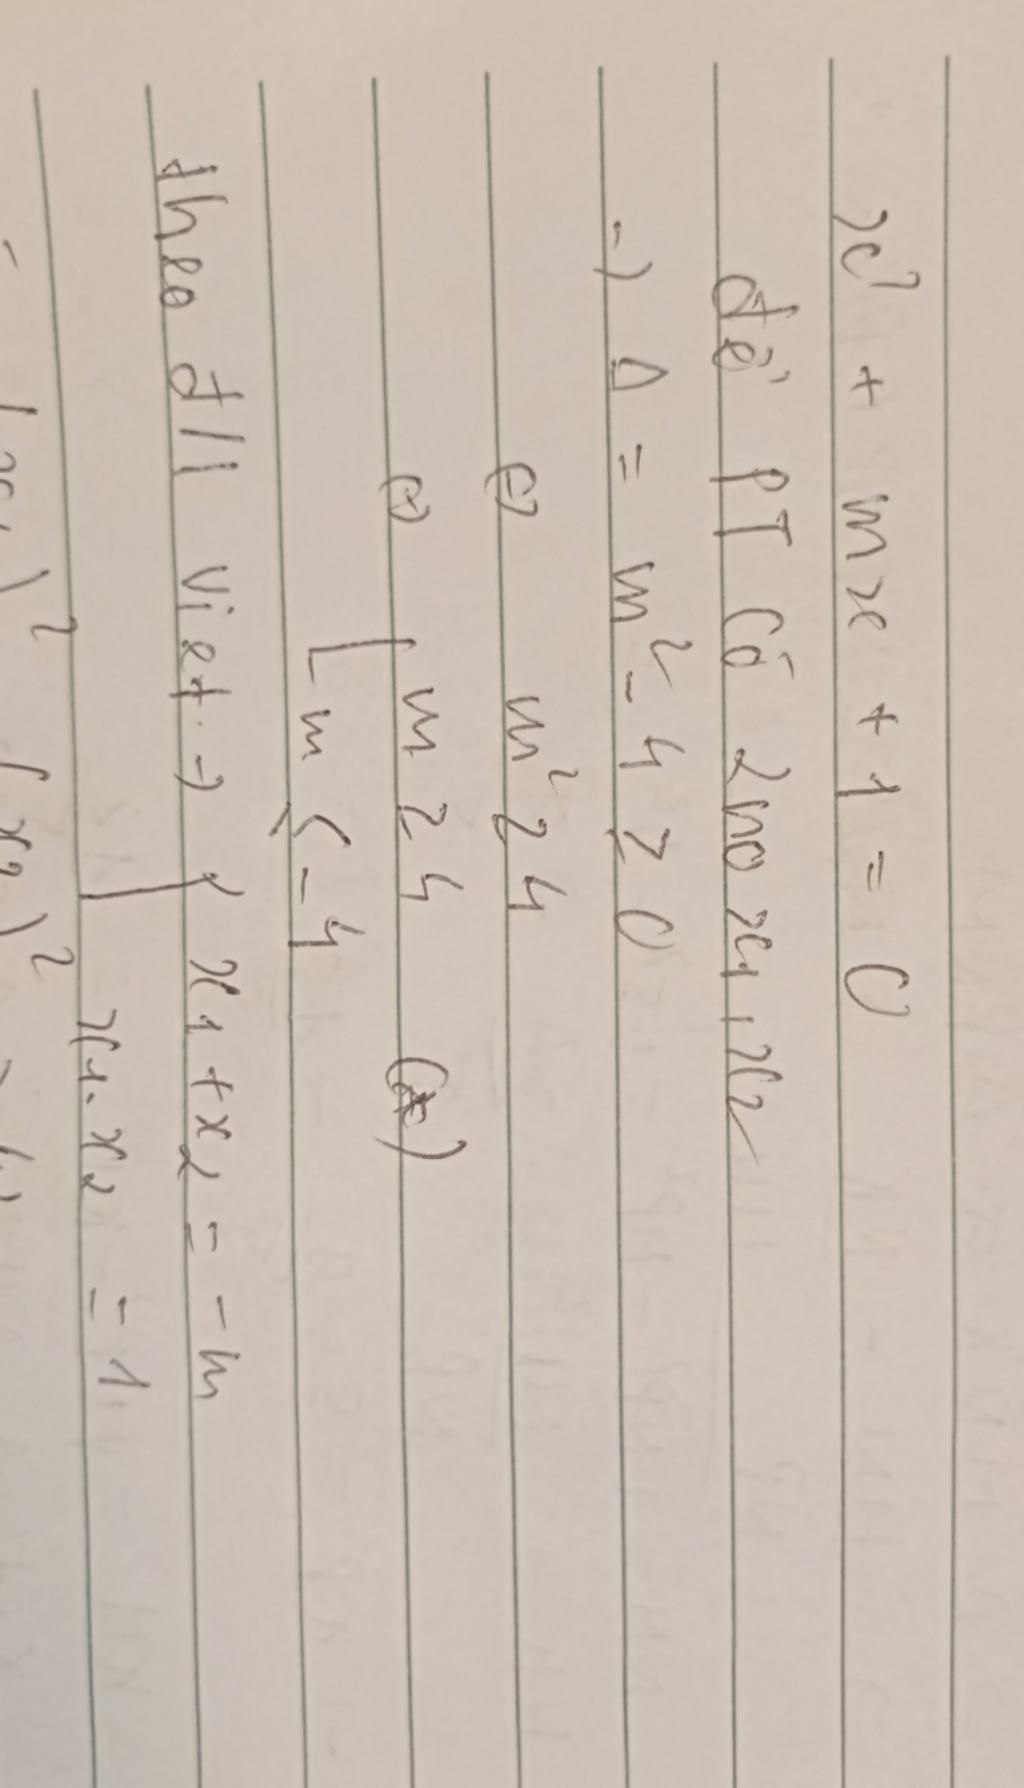 x² + mx + 1 = 0
để PT có 2no x1, x2
-) Δ = m² - 4 ≥ 0
⇔ m² ≥ 4
⇔ [ m ≥ 4 (*)
[ m ≤ -4
theo đ/l viet → { x1 + x2 = -m
x1 . x2 = 1